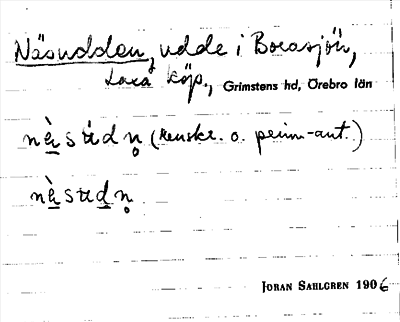 Näsudden, udde i Borasjön,
Laxå köp., Grimstens hd, Örebro län
nè̱stìdn̥ (renskr. o. prim-ant.)
nè̱stɪd̲n̥
JÖRAN SAHLGREN 1906